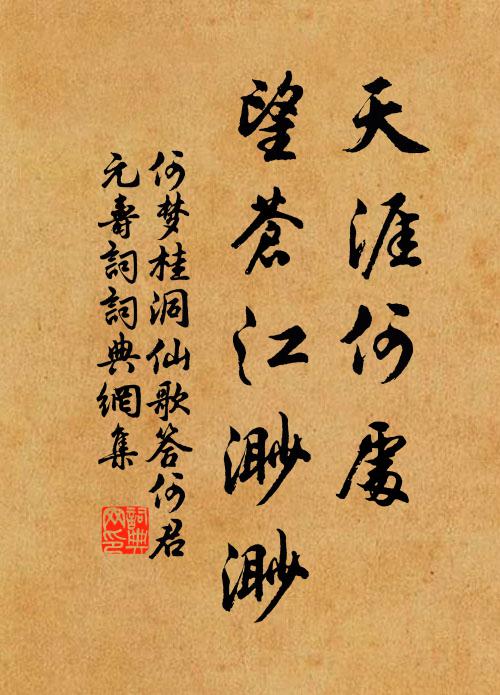 天涯何處
望蒼江渺渺
何梦桂洞仙歌答何君
元壽詞詞典網集
詞典網印